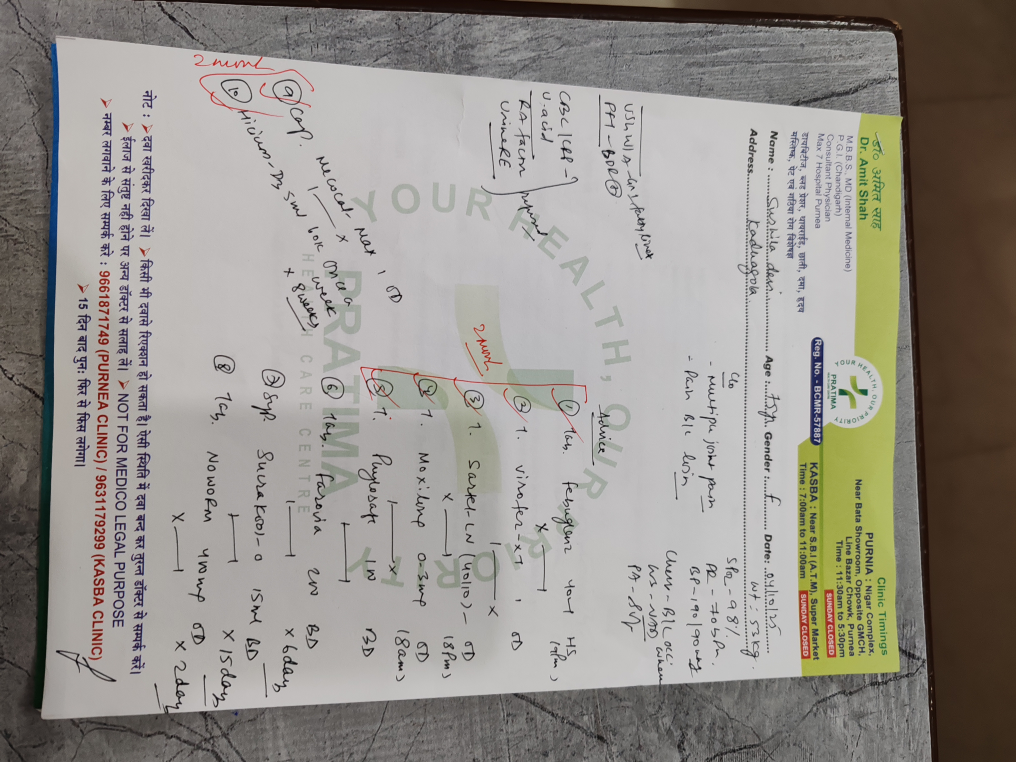 डॉ० अमित साह
Dr. Amit Shah
M.B.B.S., MD (Internal Medicine)
P.G.I. (Chandigarh)
Consultant Physician
Max 7 Hospital Purnea
डायबिटीज, ब्लड प्रेशर, थायराईड, छाती, दमा, ह्रदय
मस्तिष्क, पेट एवं गठिया रोग विशेषज्ञ
YOUR HEALTH, OUR PRIORITY
PRATIMA
Reg. No. - BCMR-57887
Clinic Timings
PURNIA : Nigar Complex,
Near Bata Showroom, Opposite GMCH,
Line Bazar Chowk, Purnea
Time : 11:30am to 5:30pm
SUNDAY CLOSED
KASBA : Near S.B.I (A.T.M), Super Market
Time : 7:00am to 11:00am SUNDAY CLOSED
Name : Sushila devi Age : Gender : F Date: 04/10/25
Address Kadhagola
Wt: 53kg
C/o
- Multiple joint pain
- Pain B/L
SPO2 - 98%
PR - 70 bpm
BP - 190/90
Chest - B/L
PA - Soft
CBC/CRP
U.acid
RA factor
Urine RE
Advice
① Tab. Febuglenz 40 1 HS
② T. Virofer XT 1 OD
③ T. Sartel-LN (40/10) - OD
④ T. 0.3mg OD
⑤ T. BD
⑥ Tab. Farovia BD x 6days
⑦ Syp. Sucrakool-O 15ml BD x 15days
⑧ Tab. Noworm OD x 2days
⑨ Cap. 1 OD
⑩ 60K once a week x 8 weeks
2 month
2 month
YOUR HEALTH, OUR PRIORITY
PRATIMA
HEALTH CARE CENTRE
नोट : ➤ दवा खरीदकर दिखा लें। ➤ किसी भी दवासे रिएक्शन हो सकता है। ऐसी स्थिति में दवा बन्द कर तुरन्त डॉक्टर से सम्पर्क करें।
➤ ईलाज से संतुष्ट नही होने पर अन्य डॉक्टर से सलाह लें। ➤ NOT FOR MEDICO LEGAL PURPOSE
➤ नम्बर लगवाने के लिए सम्पर्क करे : 9661871749 (PURNEA CLINIC) / 9631179299 (KASBA CLINIC)
➤ 15 दिन बाद पुनः फिर से फिस लगेगा।